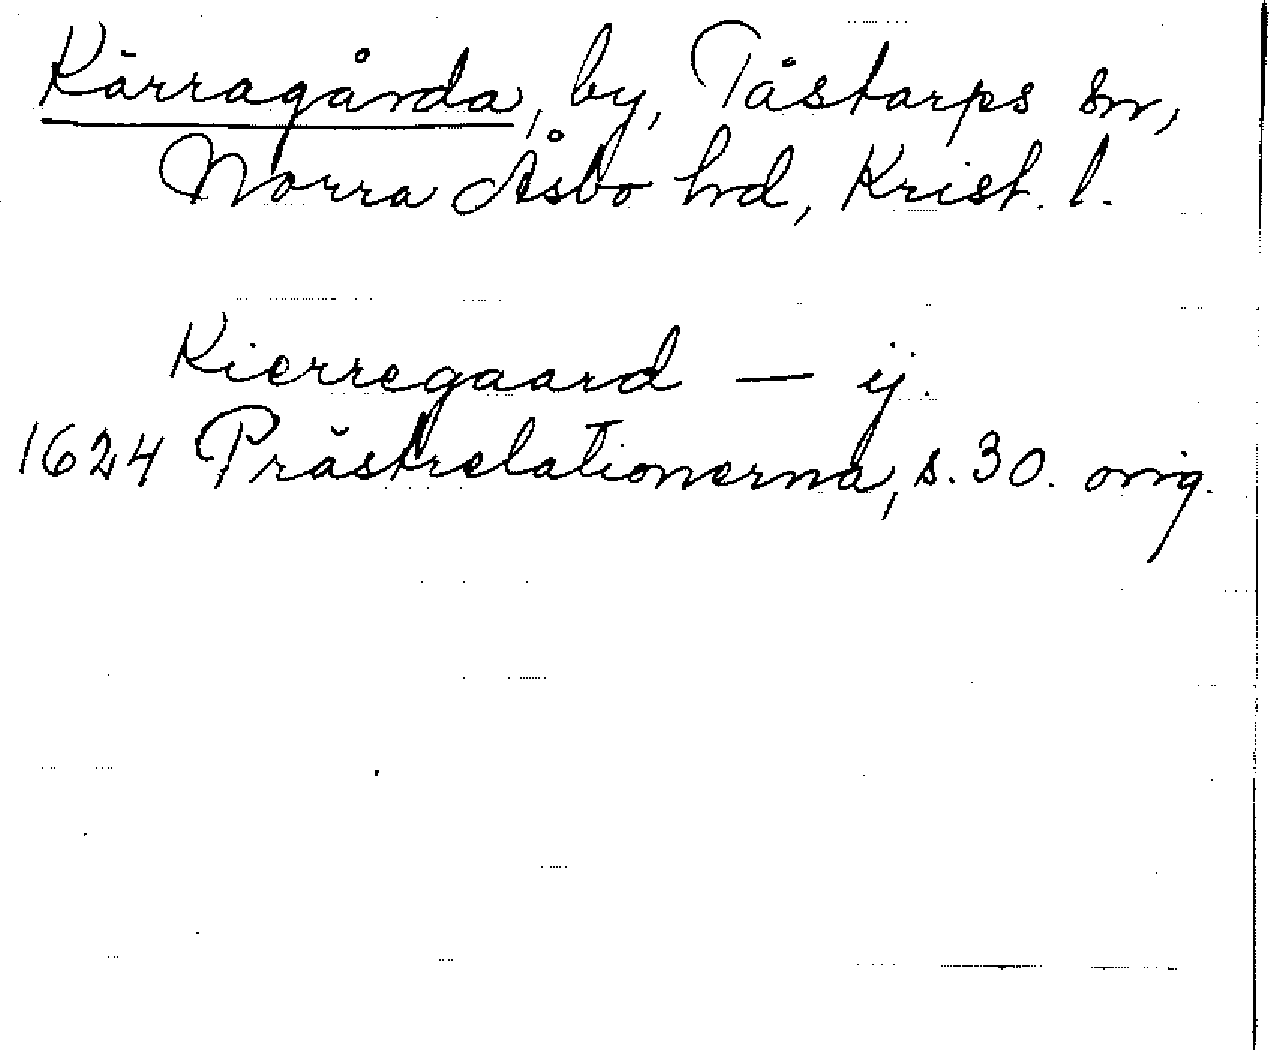 Kärragårda, by, Tåstarps sn,
Norra Åsbo hd, Krist. l.
Kierregaard — ij.
1624 Prästrelationerna, s. 30. orig.